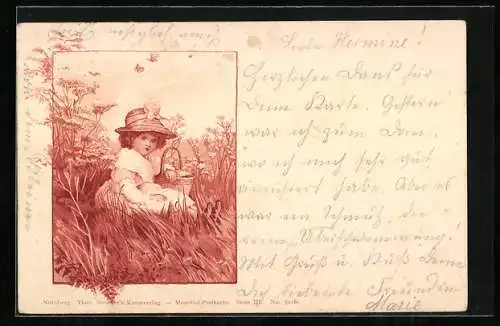 Liebe Hermine!
Herzlichen Dank für
Deine Karte. Gestern
war ich zum Dom,
wo ich mich sehr gut
amüsiert habe. Aber es
war ein Schmutz, die
reine Überschwemmung!
Mit Gruß u. Kuß Deine
Dich liebende Freundin
Marie
Nürnberg, Theo. Kunstverlag — Postkarte. Serie III. No.